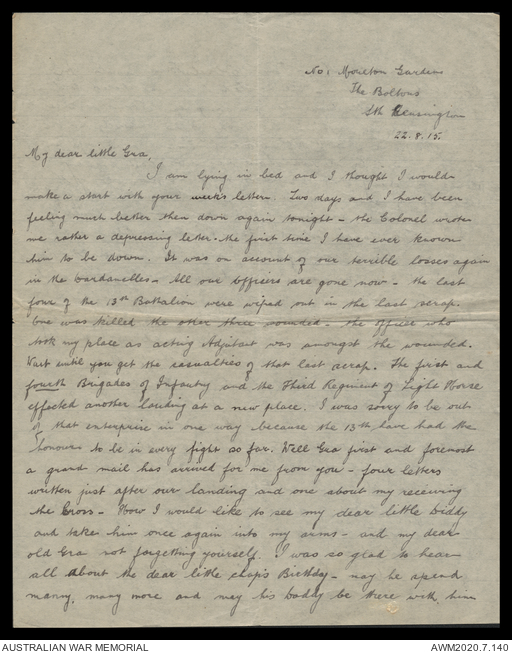 No: 1 Moreton Gardens
The Boltons
Sth Kensington
22.8.15.
My dear little Gra,
I am lying in bed and I thought I would
make a start with your week's letter. Two days and I have been
feeling much better then down again tonight - the Colonel wrote
me rather a depressing letter - the first time I have ever known
him to be down. It was on account of our terrible losses again
in the Dardanelles - All our officers are gone now - the last
four of the 13th Battalion were wiped out in the last scrap.
One was killed the other three wounded - the officer who
took my place as acting Adjutant was amongst the wounded.
Wait until you get the casualties of that last scrap. The first and
fourth Brigades of Infantry and the Third Regiment of Light Horse
effected another landing at a new place. I was sorry to be out
of that enterprise in one way because the 13th have had the
honour to be in every fight so far. Well Gra first and foremost
a grand mail has arrived for me from you - four letters
written just after our landing and one about my receiving
the Cross - How I would like to see my dear little Biddy
and take him once again into my arms - and my dear
old Gra not forgetting yourself. I was so glad to hear
all about the dear little chap's Birthday - may he spend
many, many more and may his Daddy be there with him
AUSTRALIAN WAR MEMORIAL
AWM2020.7.140